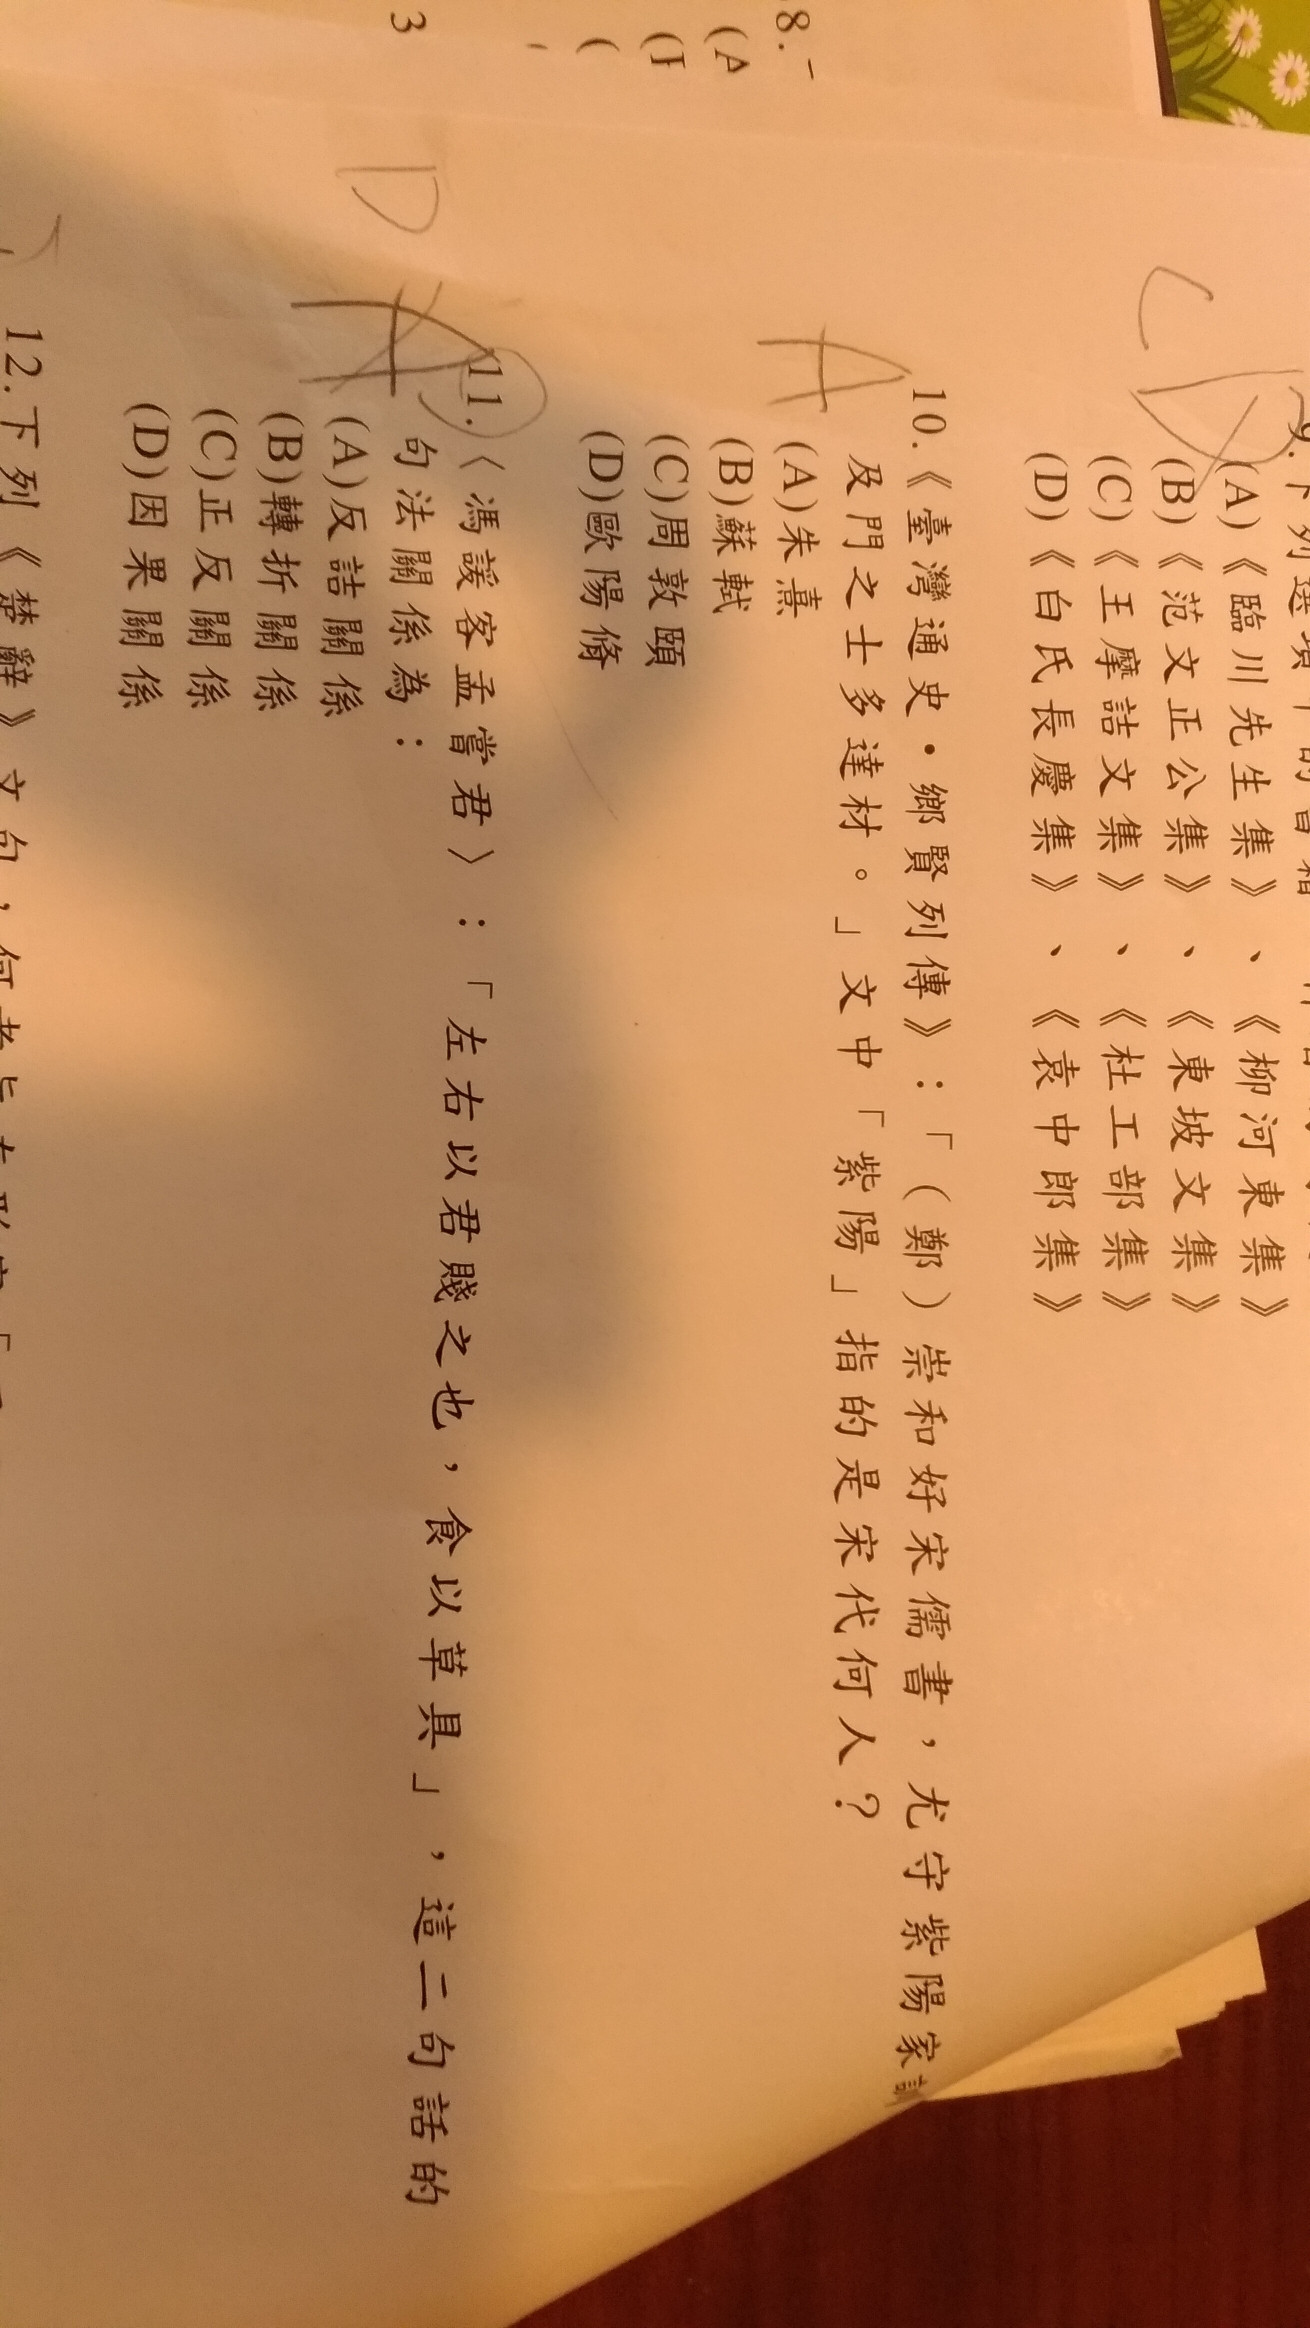 8.
(A
(
3
9.下列選項中的書籍
(A)《臨川先生集》、《柳河東集》
(B)《范文正公集》、《東坡文集》
(C)《王摩詰文集》、《杜工部集》
(D)《白氏長慶集》、《袁中郎集》
C
A
10.《臺灣通史·鄉賢列傳》:「(鄭)崇和好宋儒書,尤守紫陽家訓
及門之士多達材。」文中「紫陽」指的是宋代何人?
(A)朱熹
(B)蘇軾
(C)周敦頤
(D)歐陽脩
D
A
11.〈馮諼客孟嘗君〉:「左右以君賤之也,食以草具」,這二句話的
句法關係為:
(A)反詰關係
(B)轉折關係
(C)正反關係
(D)因果關係
12.下列《楚辭》文句,何者